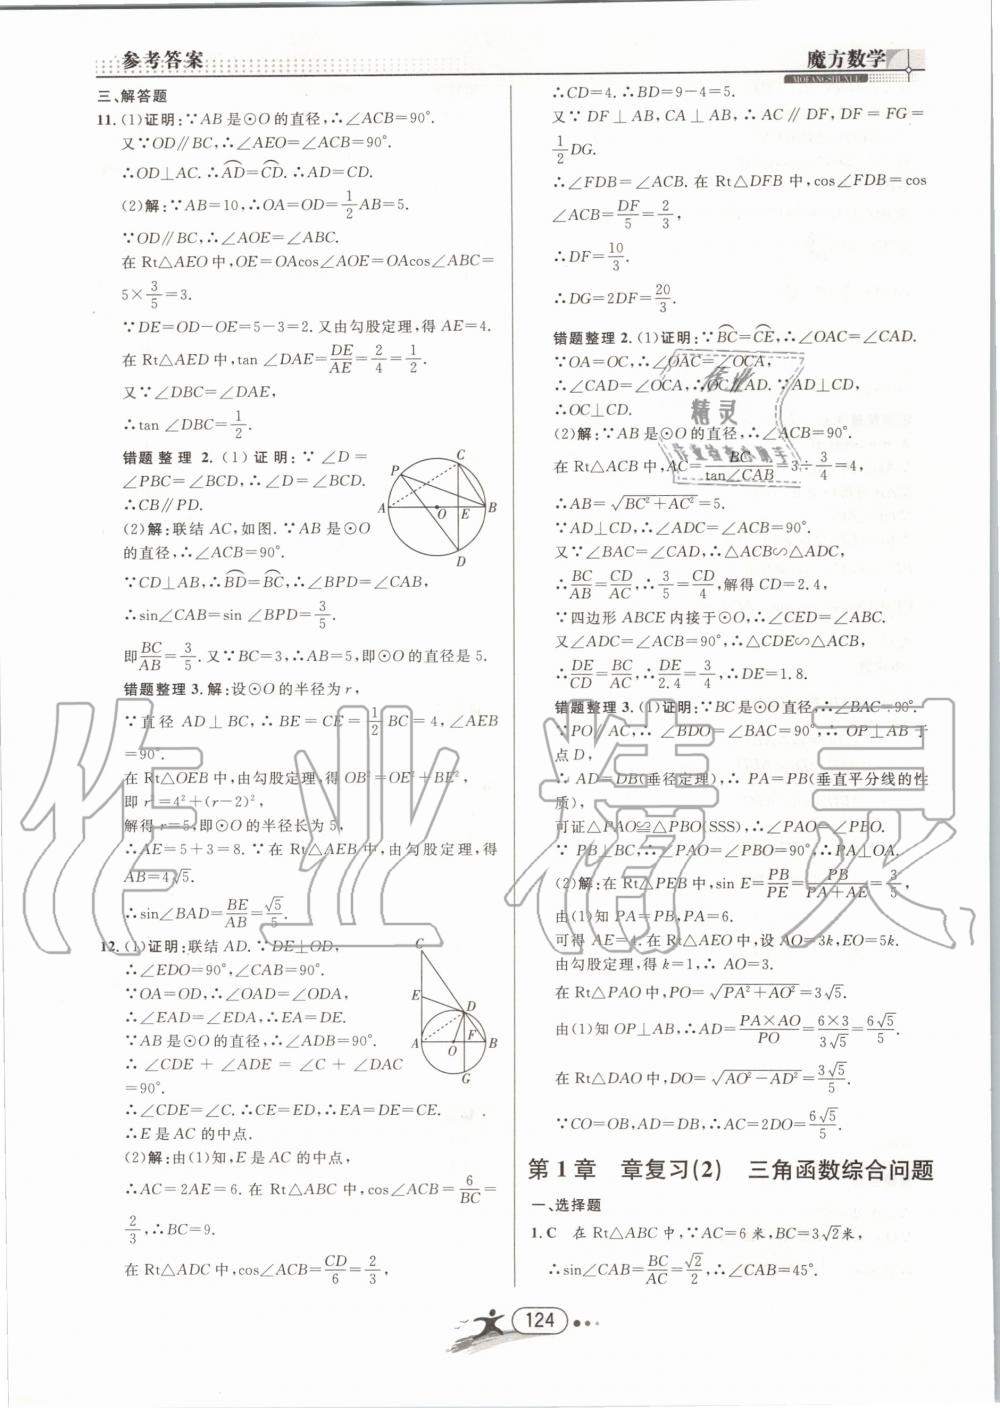 参考答案
魔方数学
MOFANGSHUXUE
三、解答题
11. (1)证明:∵AB是⊙O的直径,∴∠ACB=90°.
又∵OD∥BC,∴∠AEO=∠ACB=90°.
∴OD⊥AC. ∴⌒AD=⌒CD. ∴AD=CD.
(2)解:∵AB=10,∴OA=OD=1/2AB=5.
∵OD∥BC,∴∠AOE=∠ABC.
在 Rt△AEO 中,OE=OAcos∠AOE=OAcos∠ABC=
5×3/5=3.
∵DE=OD-OE=5-3=2. 又由勾股定理,得 AE=4.
在 Rt△AED 中,tan ∠DAE=DE/AE=2/4=1/2.
又∵∠DBC=∠DAE,
∴tan ∠DBC=1/2.
错题整理 2. (1) 证明:∵ ∠D=
∠PBC=∠BCD,∴∠PBC=∠BCD.
∴CB∥PD.
(2)解:联结 AC,如图.∵AB 是⊙O
的直径,∴∠ACB=90°.
∵CD⊥AB,∴⌒BD=⌒BC,∴∠BPD=∠CAB,
∴sin∠CAB=sin ∠BPD=3/5.
即BC/AB=3/5. 又∵BC=3,∴AB=5,即⊙O的直径是 5.
P
C
A
O
E
B
D
错题整理 3. 解:设⊙O的半径为 r,
∵直径 AD⊥BC,∴BE=CE=1/2BC=4,∠AEB
=90°.
在 Rt△OEB 中,由勾股定理,得 OB²=OE²+BE²,
即 r²=4²+(r-2)²,
解得 r=5,即⊙O的半径长为 5,
∴AE=5+3=8. ∵在 Rt△AEB 中,由勾股定理,得
AB=4√5.
∴sin∠BAD=BE/AB=√5/5.
12. (1)证明:联结 AD. ∵DE⊥OD,
∴∠EDO=90°,∠CAB=90°.
∵OA=OD,∴∠OAD=∠ODA,
∴∠EAD=∠EDA,∴EA=DE.
∵AB是⊙O的直径,∴∠ADB=90°.
∴ ∠CDE + ∠ADE = ∠C + ∠DAC
=90°.
∴∠CDE=∠C. ∴CE=ED,∴EA=DE=CE.
∴E 是 AC 的中点.
C
E
D
A
O
F
B
G
(2)解:由(1)知,E 是 AC 的中点,
∴AC=2AE=6. 在 Rt△ABC 中,cos∠ACB=6/BC=
2/3,∴BC=9.
在 Rt△ADC 中,cos∠ACB=CD/6=2/3,
∴CD=4. ∴BD=9-4=5.
又∵ DF⊥AB,CA⊥AB, ∴ AC∥DF,DF=FG=
1/2DG.
∴∠FDB=∠ACB. 在 Rt△DFB 中,cos∠FDB=cos
∠ACB=DF/5=2/3,
∴DF=10/3.
∴DG=2DF=20/3.
错题整理 2. (1)证明:∵⌒BC=⌒CE,∴∠OAC=∠CAD.
∵OA=OC,∴∠OAC=∠OCA,
∴∠CAD=∠OCA,∴OC∥AD. ∵AD⊥CD,
∴OC⊥CD.
(2)解:∵AB是⊙O的直径,∴∠ACB=90°.
在 Rt△ACB 中,AC=BC/tan∠CAB=3÷3/4=4,
∴AB=√(BC²+AC²)=5.
∵AD⊥CD,∴∠ADC=∠ACB=90°.
又∵∠BAC=∠CAD,∴△ACB∽△ADC,
∴BC/AB=CD/AC,∴3/5=CD/4,解得 CD=2.4,
∵四边形 ABCE 内接于⊙O,∴∠CED=∠ABC.
又∠ADC=∠ACB=90°,∴△CDE∽△ACB,
∴DE/CD=BC/AC,∴DE/2.4=3/4,∴DE=1.8.
错题整理 3. (1)证明:∵BC是⊙O的直径,∴∠BAC=90°.
∵PO∥AC,∴ ∠BDO=∠BAC=90°,∴ OP⊥AB 于
点 D,
∴ AD=DB(垂径定理). ∴ PA=PB(垂直平分线的性
质),
可证△PAO≌△PBO(SSS),∴∠PAO=∠PBO.
∵ PB⊥BC,∴∠PAO=∠PBO=90°,∴PA⊥OA.
(2)解:在 Rt△PEB 中,sin E=PB/PE=PB/(PA+AE)=3/5,
由(1)知 PA=PB,PA=PB=6.
可得 AE=4. 在 Rt△AEO 中,设 AO=3k,EO=5k.
由勾股定理,得 k=1,∴ AO=3.
在 Rt△PAO 中,PO=√(PA²+AO²)=3√5.
由(1)知 OP⊥AB,∴AD=PA×AO/PO=6×3/3√5=6√5/5.
在 Rt△DAO 中,DO=√(AO²-AD²)=3√5/5.
∵CO=OB,AD=DB,∴AC=2DO=6√5/5.
第 1 章 章复习(2) 三角函数综合问题
一、选择题
1. C 在 Rt△ABC 中,∵AC=6 米,BC=3√2米,
∴sin∠CAB=BC/AC=√2/2,∴∠CAB=45°.
124
作业精灵
作业
精灵
作业检查小助手